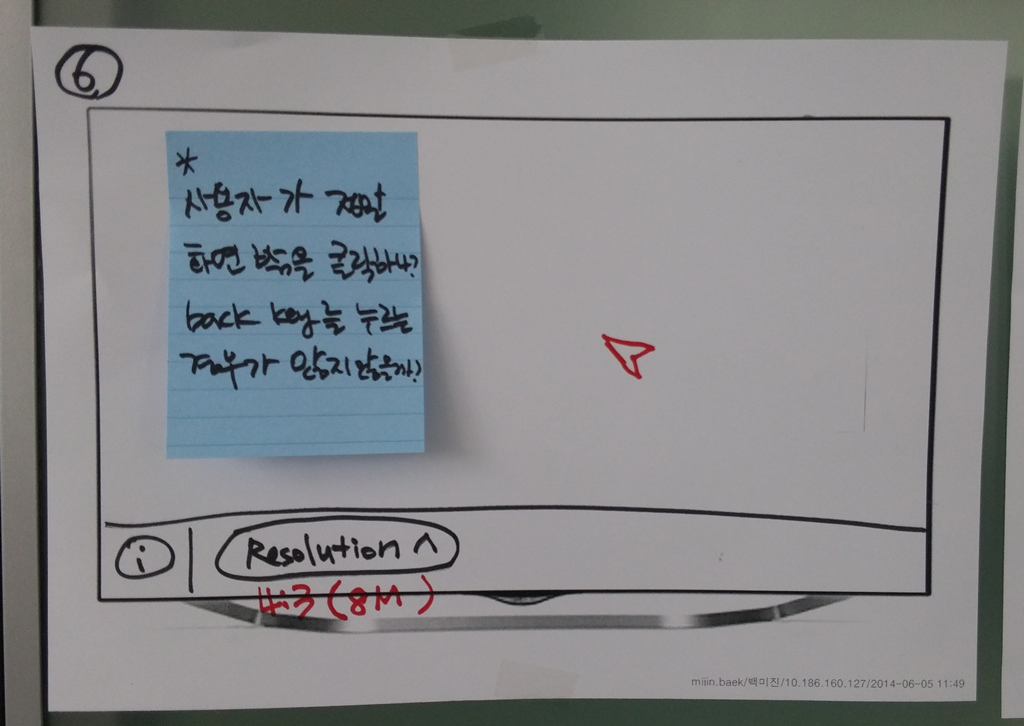 6
*
사용자가 정말
화면 밖을 클릭하나?
back key를 누르는
경우가 많지않을까?
i
Resolution ^
4:3 (8M)
miiin.baek/백미진/10.186.160.127/2014-06-05 11:49